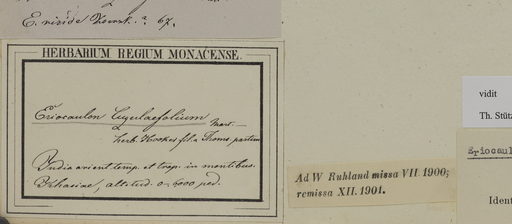 E. viride Koernk.? 67.
HERBARIUM REGIUM MONACENSE.
Eriocaulon ligulaefolium Mart.
herb. Hooker fil. & Thoms. partim
India orient. temp. et trop. in montibus
Khasiae, altitud. 0-6000 ped.
Ad W Ruhland missa VII 1900;
remissa XII. 1901.
vidit
Th. Stütz
Eriocaul
Ident